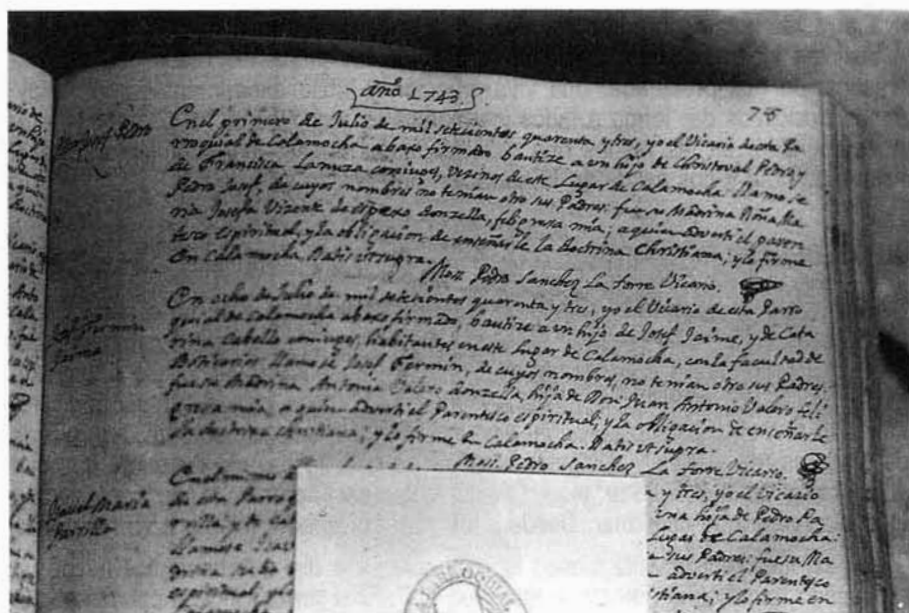 año 1743.
75
En el primero de Julio de mil setecientos quarenta y tres, yo el Vicario de esta Pa
rroquial de Calamocha abaxo firmado bautize a un hijo de Christoval Pedro, y
de Francisca Lanuza coniuges, vezinos de este Lugar de Calamocha llamose
Pedro Josef, de cuyos nombres no tenian otro sus Padres: fue su Madrina Doña Ma
ria Josefa Vizente de espexo Donzella, feligresa mia; a quien adverti el paren
tesco espiritual, y la obligacion de enseñarle la doctrina Christiana; y lo firme
en Calamocha Datis ut supra.
Mos. Pedro Sanchez La torre Vicario.
Josef Fermin
Jaime
En ocho de Julio de mil setecientos quarenta y tres, yo el Vicario de esta Parro
quial de Calamocha abaxo firmado, bautize a un hijo de Josef Jaime, y de Cata
rina Cabello coniuges, habitantes en este Lugar de Calamocha, con la facultad de
Boticarios llamose Josef Fermin, de cuyos nombres, no tenian otro sus Padres:
fue su Madrina Antonia Valero Donzella, hija de Don Juan Antonio Valero feli
gresa mia, a quien adverti el Parentesco espiritual, y la obligacion de enseñarle
la doctrina christiana; y lo firme en Calamocha. Datis ut supra.
Mos. Pedro Sanchez La torre Vicario.
Maria
de esta Parroq
y tres, yo el Vicario
rrilla y de
ina hija de Pedro Pa
llamose
Lugar de Calamocha:
sus Padres: fue su Ma
espiritual, y
adverti el Parentesco
stiana; y lo firme en